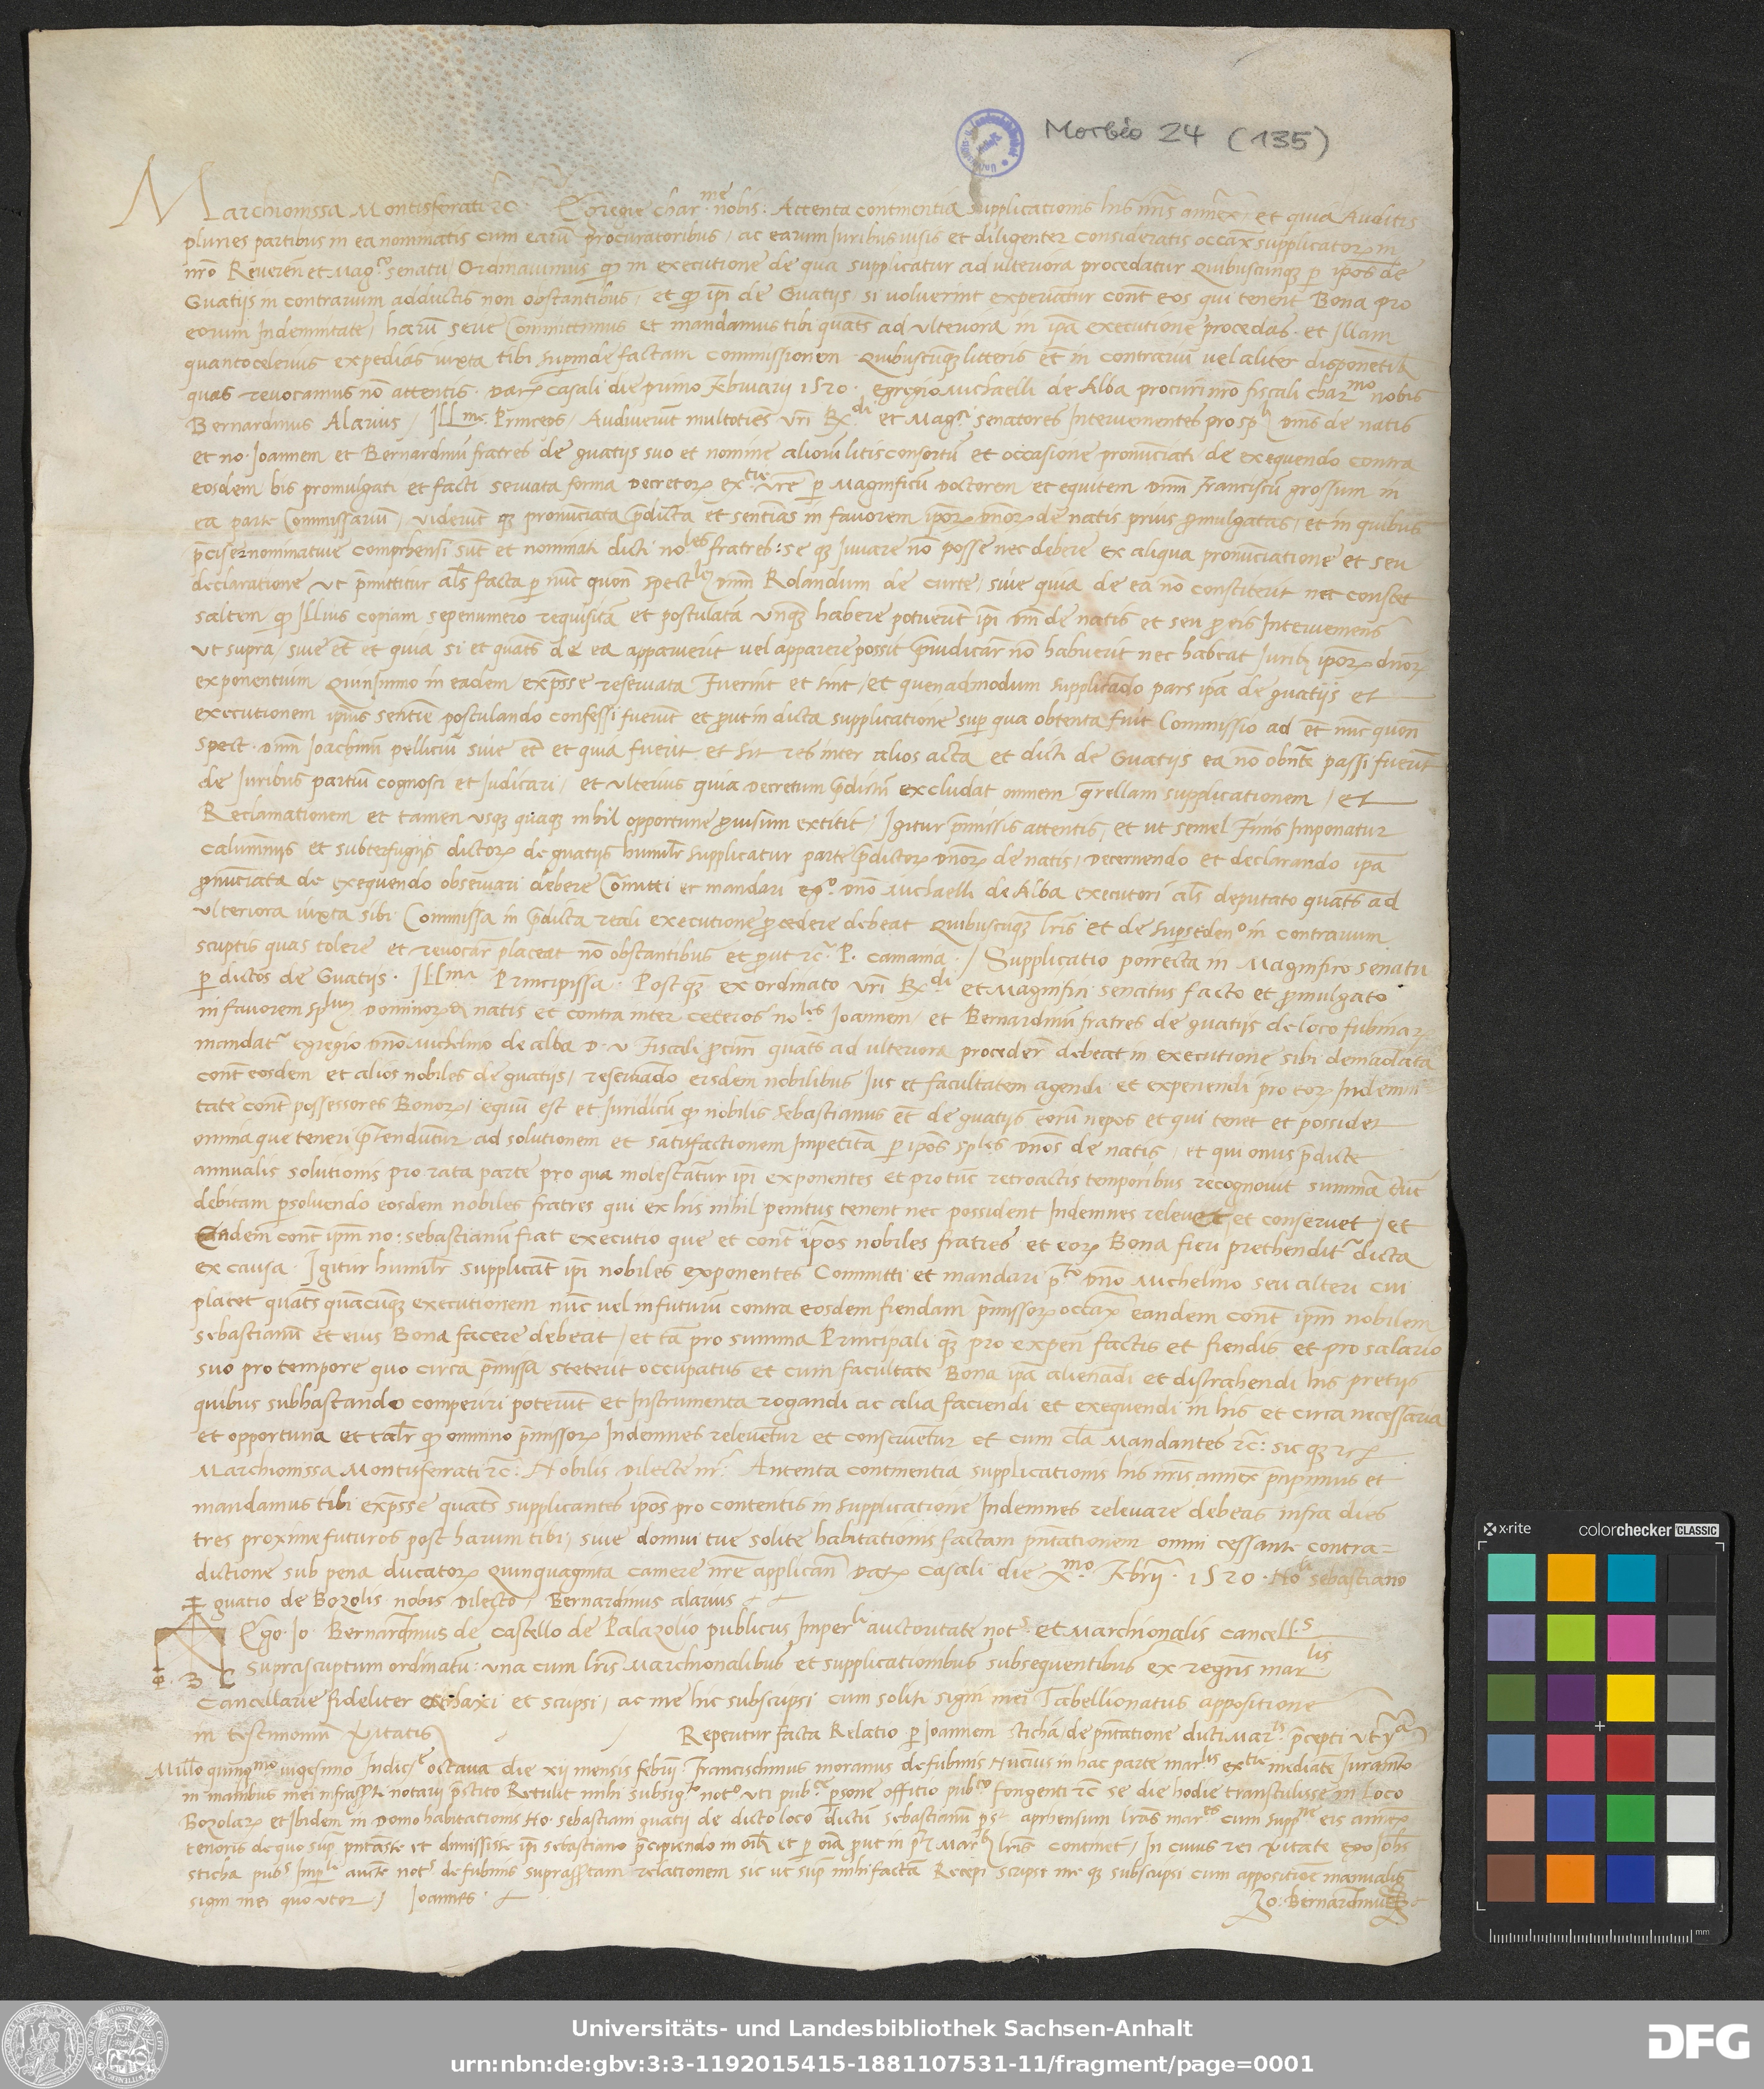 Morbio 24 (135)
Marchionissa Montisferrati etc. Egregie char.me nobis. Attenta continentia supplicationis his nr̄is annex. et quia Auditis
pluries partibus in ea nominatis cum earū procuratoribus, ac earum Juribus visis et diligenter consideratis occāx supplicator. in
nr̄o Reverēn et Mag.co senatu, Ordinavimus qđ in executione de qua supplicatur ad ulteriora procedatur Quibuscunq. p ip̄os de
Guatijs in contrarium adductis non obstantibus, et qđ ip̄i de Guatijs si voluerint experiātur cont̄ eos qui tenent Bona pro
eorum Indemnitate, harū serie Committimus et mandamus tibi quat̄s ad ulteriora in ip̄a executione procedas. et Illam
quantocelerius expedias iuxta tibi supinde factam commissionem. Quibuscūq. litteris et̄ in contrariū vel aliter disponētib.
quas revocamus nō attentis. Dat. Casali die primo februarij 1520. Egregio Michaelli de Alba procur̄i nr̄o fiscali char.mo nobis
Bernardinus Alarius / Ill.me Princeps, Audiverūt multoties vr̄i R.di et Mag.ci senatores Intervenientes pro sp. Dnīs de natis
et no. Joannem et Bernardinū fratres de guatijs suo et nomine aliorū litisconsortū et occasione pronūciati de exequendo contra
eosdem bis promulgati et facti servata forma Decretor. ex.tie vr̄e p Magnificū Doctorem et equitem Dnm̄ Franciscū grossum in
ea parte Commissariū, viderūt q. pronūciata p̄dicta et sentēias in favorem ipor. dnor. de natis prius promulgatas, et in quibus
p̄cise nominative comprhensi sūt et nominati dicti no.les fratres: se q. juvare nō posse nec debere ex aliqua pronūciatione et seu
declaratione ut p̄mittitur al̄s facta p nūc quon̄ spect.lē Dnm̄ Rolandum de curte, sive quia de ea nō constiterit nec constet
saltem qđ Illius copiam sepenumero requisitā et postulatā unq. habere potuerūt ip̄i Dnī de natis et seu p eis Intervemens
ut supra, sive et̄ et quia si et quat̄s de ea apparuerit vel apparere possit p̄iudicar̄ nō habuerit nec habeat Jurib. ipor. dnor.
exponentium Quinsimmo in eadem exp̄sse reservata fuerint et sint, et quenadmodum supplicādo pars ip̄a de guatijs et
executionem ip̄ius sentēie postulando confessi fuerūt et prout in dicta supplicatione sup qua obtenta fuit Commissio ad et̄ nūc quon̄
spect. Dnm̄ Joachinū pelliciū sive et̄ et quia fuerit et sit res inter alios acta et dicti de Guatijs ea nō obn̄te passi fuerūt
de Juribus partiū cognosci et Judicari, et ulterius quia decretum p̄dictū excludat omnem qrellam supplicationem, et
Reclamationem et tamen usq. quaq. nihil opportune provisum extitit, Igitur p̄missis attentis, et ut semel finis Imponatur
calumnijs et subterfugijs dictor. de guatijs humilr̄ supplicatur parte p̄dictor. Dnor. de natis, Decernendo et declarando ip̄a
pronūciata de exequendo observari debere Cōmitti et mandari eg.o Dno Michaelli de Alba executori al̄s deputato quat̄s ad
ulteriora iuxta sibi Commissa in p̄dicta reali executione procedere debeat Quibuscūq. lr̄is et de supersedeno in contrarium
scriptis quas tolere et revocar̄ placeat nō obstantibus et prout etc. P. Camama. / Supplicatio porrecta in Magnifico senatu
p dictos de Guatijs. Ill.ma Principissa. Post q. ex ordinato vr̄i R.di et Magnifici senatus facto et promulgato
in favorem sp.lium Dominor. de natis et contra inter ceteros no.les Joannem, et Bernardinū fratres de guatijs de loco fubinar.
mandat. egregio Dno Michelino de alba D. V. fiscali procūri quat̄s ad ulteriora procedere debeat in executione sibi demādata
cont̄ eosdem et alios nobiles de guatijs, reservādo eisdem nobilibus Jus et facultatem agendi et experiendi pro eor. Indemni
tate cont̄ possessores Bonor., equū est et Juridicū qđ nobilis sebastianus et̄ de guatijs eorū nepos et qui tenet et possidet
omnia que teneri p̄tenduntur ad solutionem et satisfactionem Impetitā p ip̄os sp.les Dnos de natis, et qui onus p̄dicte
annualis solutionis pro rata parte pro qua molestātur ip̄i exponentes et pro tūc retroactis temporibus recognovit summā tūc
debitam psolvendo eosdem nobiles fratres qui ex his nihil penitus tenent nec possident Indemnes relevet et conservet, et
Eadem cont̄ ipm̄ no: sebastianū fiat executio que et cont̄ ip̄os nobiles fratres et eor. Bona fieri prethendit. dicta
ex causa. Igitur humilr̄ supplicāt ip̄i nobiles exponentes Committi et mandari p.to Dno Michelino seu alteri cui
placet quat̄s quācūq. executionem nūc vel in futurū contra eosdem fiendam p̄missor. occāx eandem cont̄ ipm̄ nobilem
sebastianū et eius Bona facere debeat, et tā pro summa Principali q. pro expen̄ factis et fiendis et pro salario
suo pro tempore quo circa p̄missa steterit occupatus et cum facultate Bona ip̄a alienādi et distrahendi his pretijs
quibus subhastando comperiri poterūt et Instrumenta rogandi ac alia faciendi et exequendi in his et circa necessaria
et opportuna et talr̄ qđ omnino p̄missor. Indemnes relevētur et conservētur et cum cl̄a Mandantes etc: sic q. etc.
Marchionissa Montisferrati etc: Nobilis Dilecte nr̄. Antenta continentia supplicationis his nr̄is annex p̄cipimus et
mandamus tibi exp̄sse quat̄s supplicantes ip̄os pro contentis in supplicatione Indemnes relevare debeas infra dies
tres proxime futuros post harum tibi, sive domui tue solite habitationis factam pn̄tationem omni cessante contra=
dictione sub pena ducator. Quinquaginta camere nr̄e applican̄ Dat. Casali die X.mo febrij. 1520. No.li sebastiano
guatio de Bozolis nobis Dilecto, Bernardinus alarius
Ego. Jo. Bernardinus de Castello de Palazolio publicus Imper.li auctoritate not.s et Marchionalis Cancell.s
suprascriptum ordinatū: una cum lr̄is Marchionalibus et supplicationibus subsequentibus ex regr̄is mar.lis
Cancellarie fideliter extraxi et scripsi, ac me hic subscripsi cum soliti signi mei Tabellionatus appositione
in testimoniū veritatis
Reperitur facta Relatio p Joannem stichā, de pn̄tatione dicti Mar.lis p̄cepti ut
Mill.o quing.mo vigesimo Indic.e octava die xij mensis febrij Francischinus moranus de fubinis Nūcius in hac parte mar.lis ex.tie mediāte Juramto
in manibus mei infrascpti notarij p̄stito Retulit mihi subsig.to not.o uti pub.ce psone officio pub.co fongenti etc se die hodie transtulisse in Loco
Bozolar. et Ibidem in Domo habitationis No. sebastiani guatij de dicto loco dictū sebastianū aprhensum lr̄as mar.es cum supp.ne eis annex.
tenoris de quo sup. pn̄tasse et dimisisse ip̄i sebastiano p̄cipiendo in oīb. et p oīa prout in mar.lib. lr̄is continet, In cuius rei veritate ego Joh̄s
sticha pub.s Imp.li aucte not.s de fubinis suprascptam relationem sic ut sup. mihi factā Recepi scripsi me q. subscripsi cum appositione manualis
signi mei quo utor, Joannes
Jo: Bernardinus
x-rite
colorchecker CLASSIC
mm
Universitäts- und Landesbibliothek Sachsen-Anhalt
urn:nbn:de:gbv:3:3-1192015415-1881107531-11/fragment/page=0001
DFG